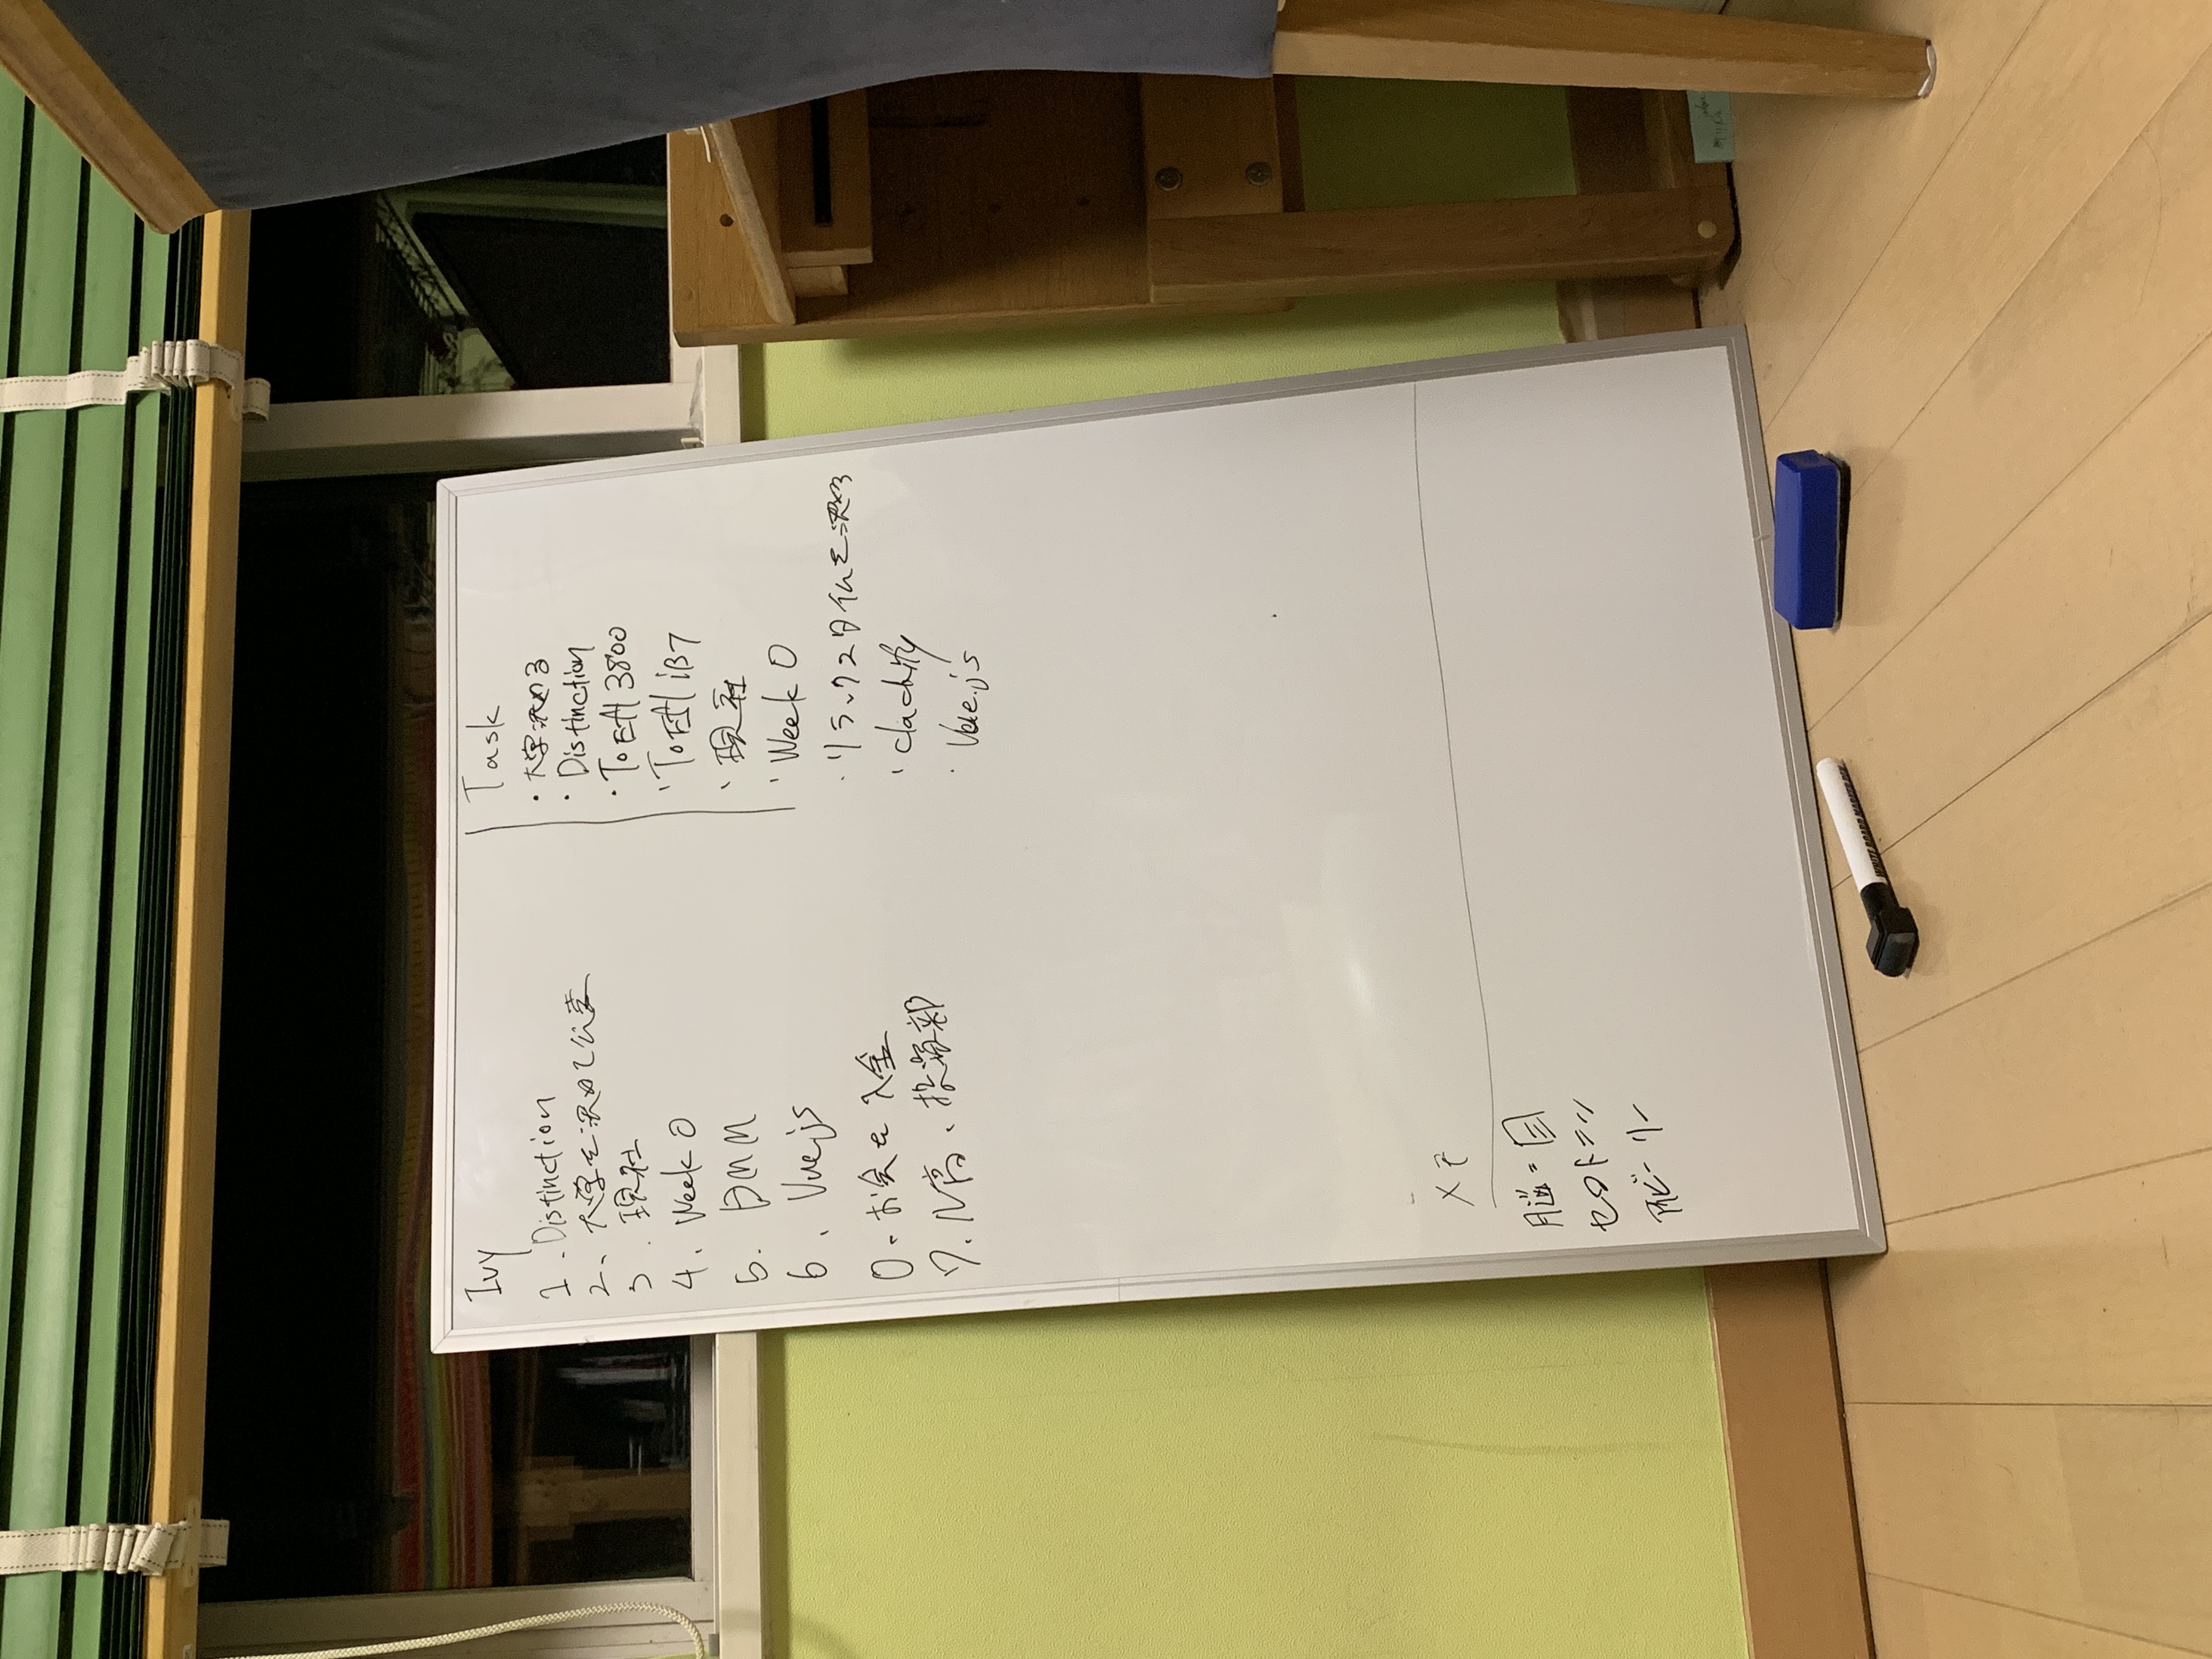 Ivy
1. Distinction
2. 大学を決めて公言
3. 現社
4. Week 0
5. DMM
6. Vue.js
0. お金を入金
7. N高、投資部
Task
・大学決める
・Distinction
・Toefl 3800
・Toefl iBT
・現社
・Week 0
・リラックスタイムを決める
・Vue.js
メモ
脳=目
セロトニン
アイビーリー
WHITE BOARD MARKER PEN